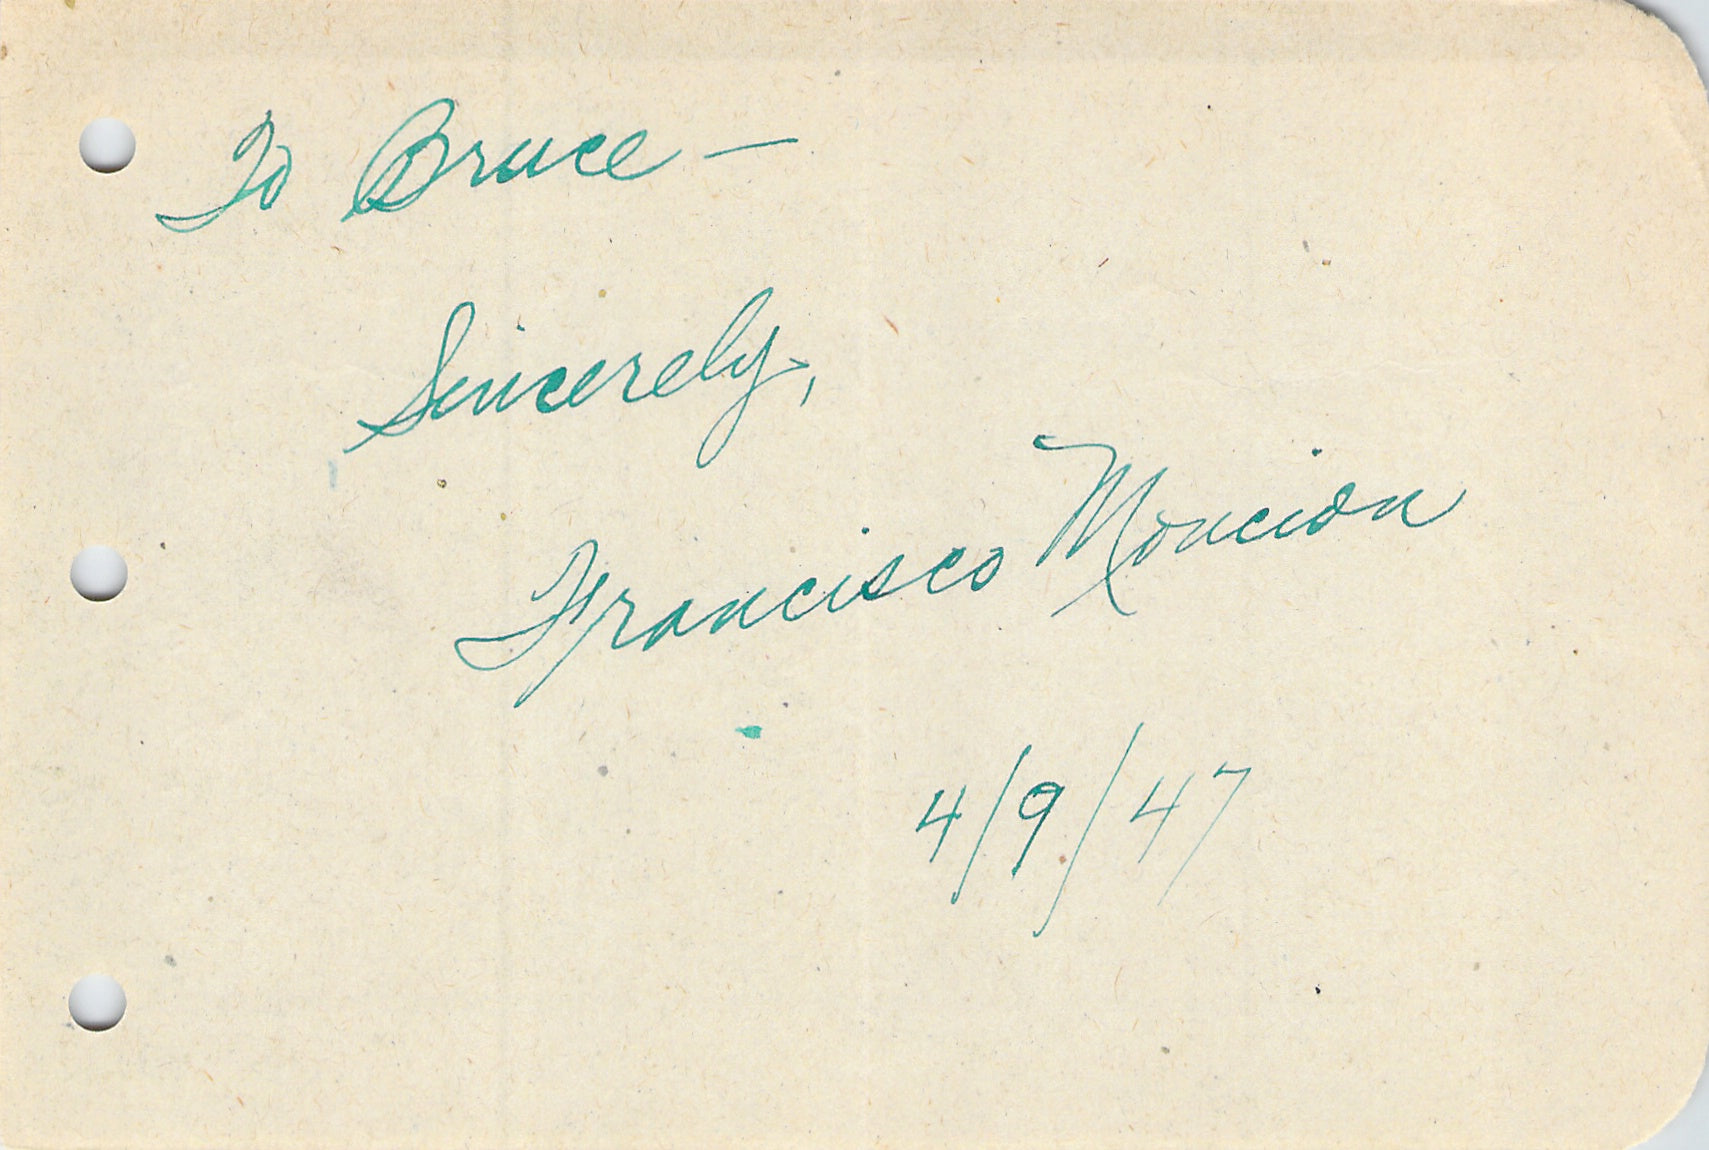 To Bruce —
Sincerely,
Francisco Moncion
4/9/47